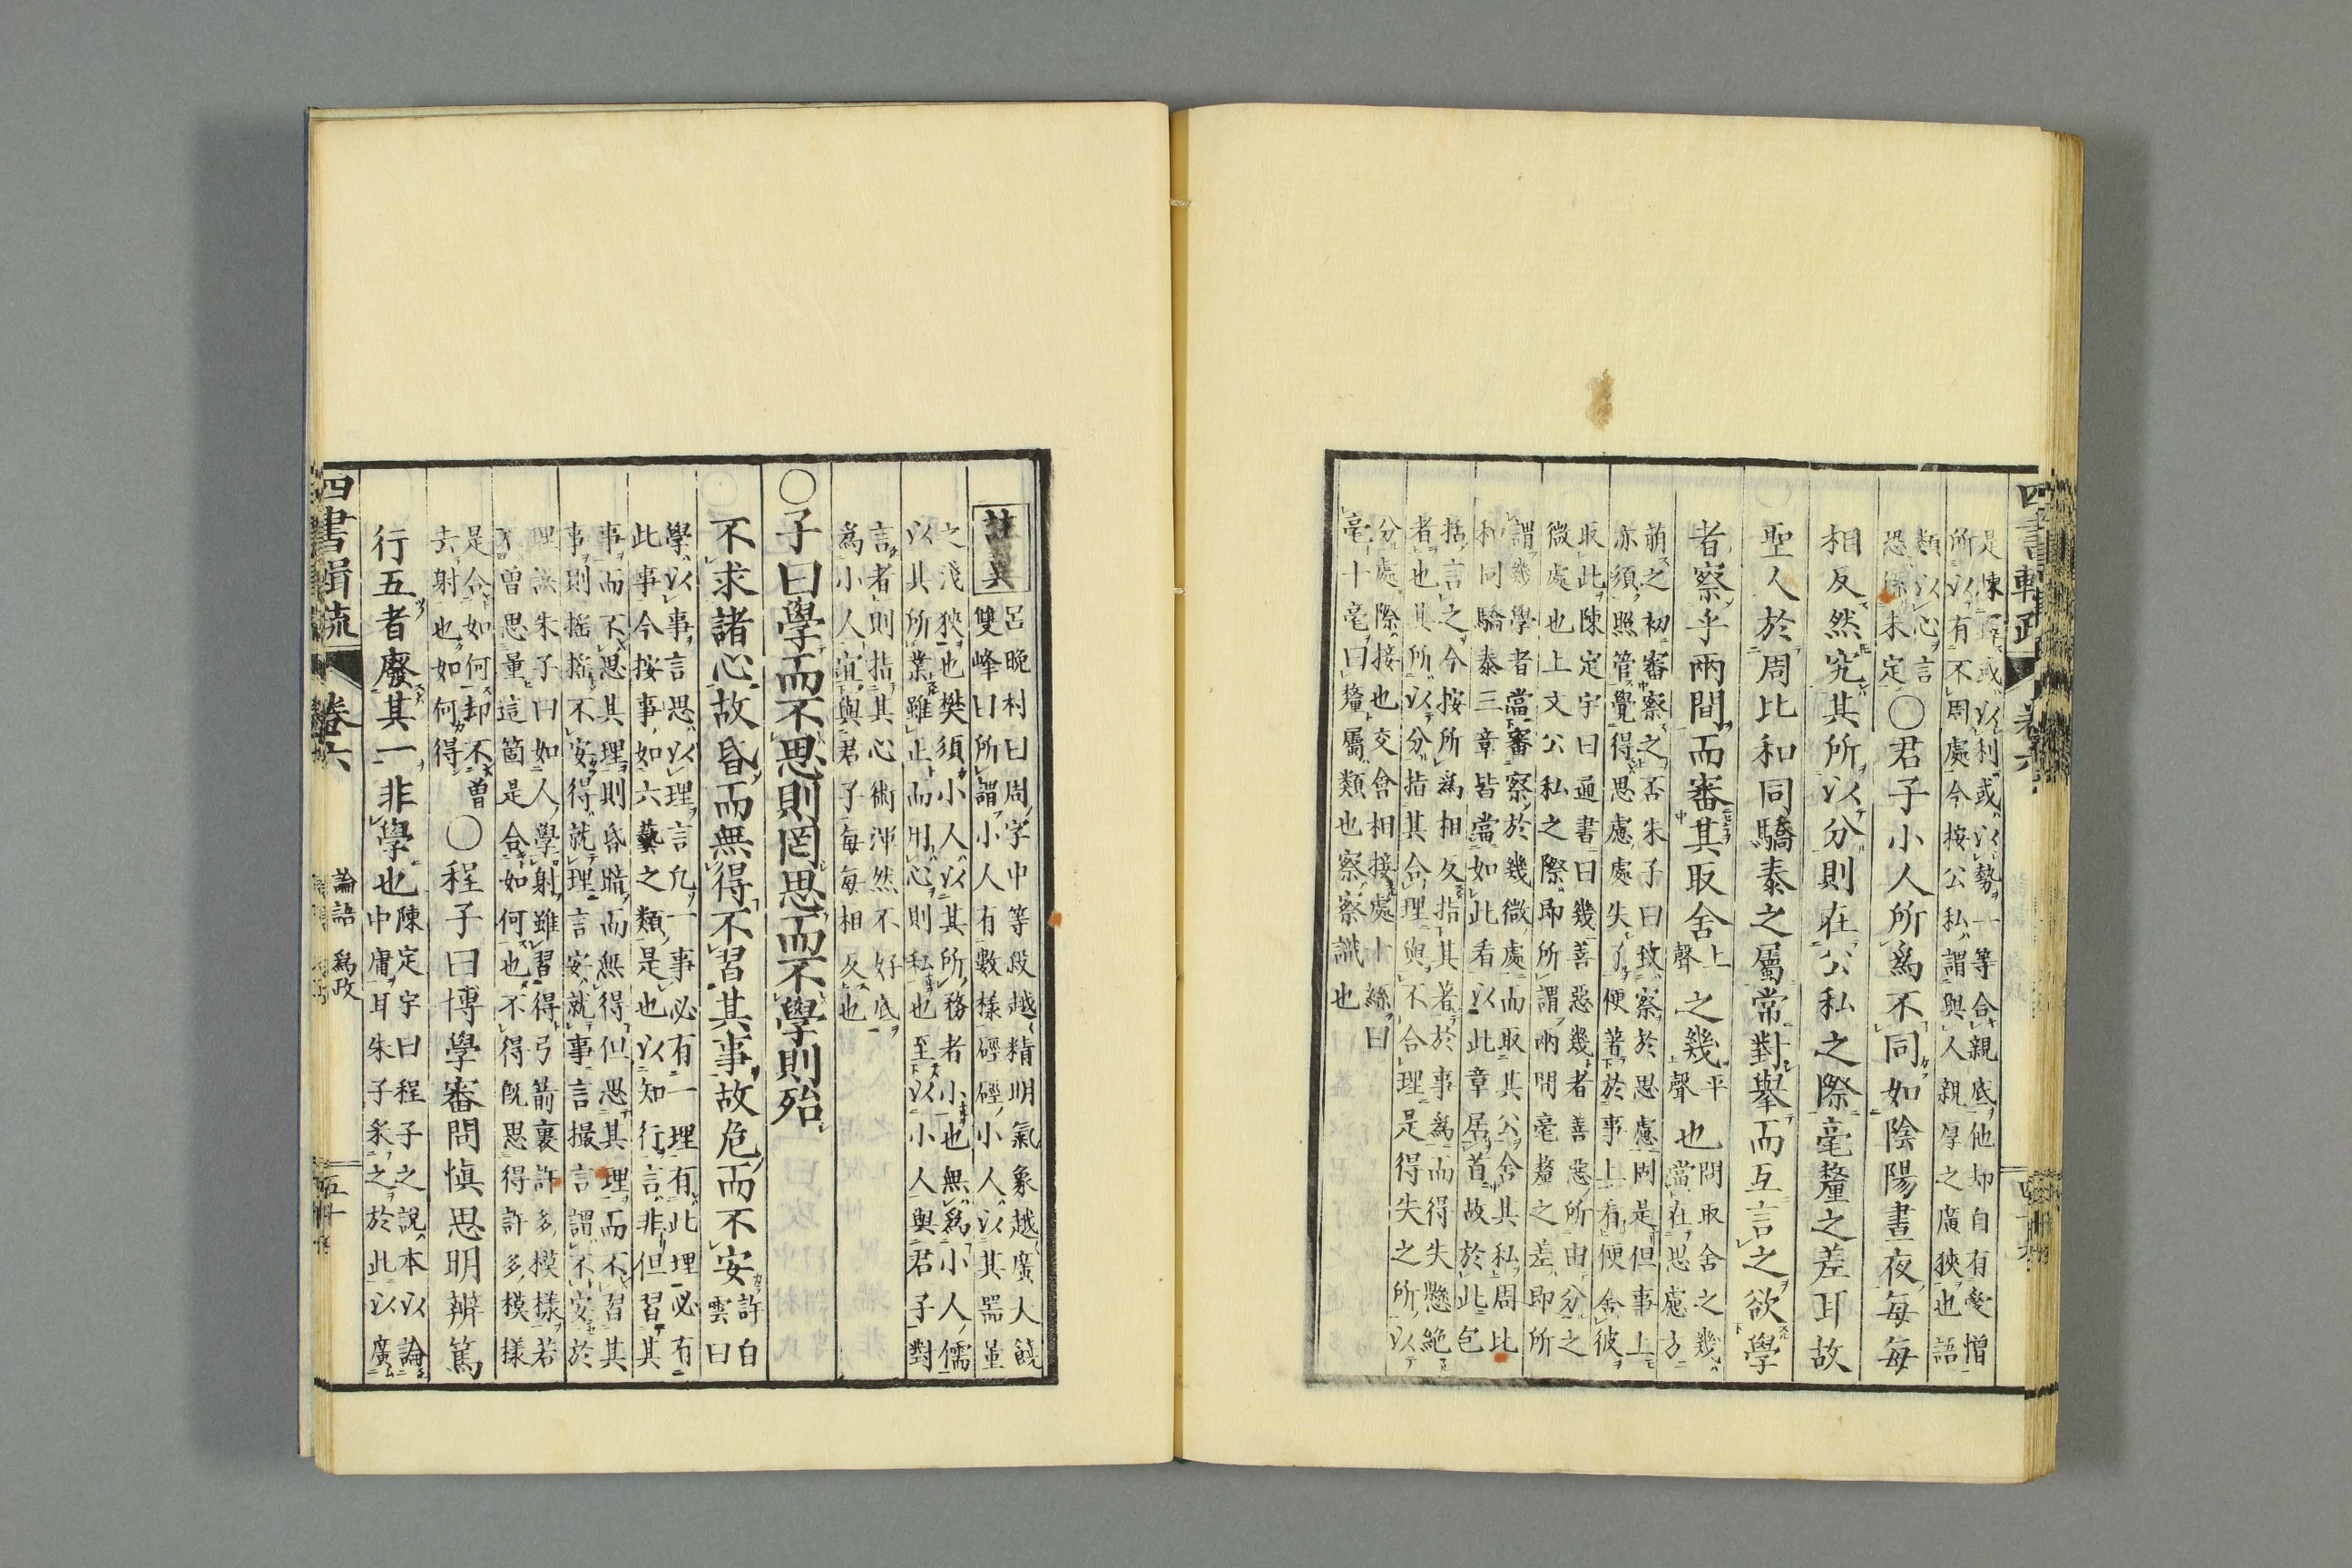 是陳或以利或以勢一等合親底他却自有愛憎
所以有不周處今按公私謂與人親厚之廣狹也語
類以心言
恐未定
〇君子小人所爲不同如陰陽晝夜每每
相反然究其所以分則在公私之際毫釐之差耳故
聖人於周比和同驕泰之屬常對擧而互言之欲學
者察乎兩間而審其取舍
上
聲
之幾
平
聲
也
問取舍之幾
當在思慮方
萌之初審察之否朱子曰致察於思慮固是但事上
亦須照管覺得思慮處失了便著於事上看便舍彼
取此陳定宇曰通書曰幾善惡幾者善惡所由分之
微處也上文公私之際即所謂兩間毫釐之差即所
謂幾學者當審察於幾微處而取其公舍其私周比
和同驕泰三章皆當如此看以此章居首故於此包
括言之今按所爲相反指其著於事爲而得失懸絶
者也其所以分指其合理與不合理是得失之所以
分處際接也交會相接處十絲曰
毫十毫曰釐屬類也察察識也
四書輯疏
卷六
呂晩村曰周字中等級越精明氣象越廣大饒
雙峰曰所謂小人有數樣硜硜小人以其器量
之淺狹也樊須小人以其所務者小也無爲小人儒
以其所業雖止而用心則私也至以小人與君子對
言者則指其心術渾然不好底
爲小人宜與君子每每相反也
〇子曰學而不思則罔思而不學則殆
不求諸心故昏而無得不習其事故危而不安
許白
雲曰
學以事言思以理言凡一事必有一理有此理必有
此事今按事如六藝之類是也以知行言非但習其
事而不思其理則昏暗而無得但思其理而不習其
事則搖搖不安得就理言安就事言撮言謂不安於
理誤朱子曰如人學射雖習得弓箭裏許多模樣若
不曾思量這箇是合如何也不得旣思得許多模樣
是合如何却不曾
去射也如何得
〇程子曰博學審問愼思明辨篤
行五者廢其一非學也
陳定宇曰程子之說本以論
中庸耳朱子釆之於此以廣
四書輯疏
卷六
論語
爲政
五十